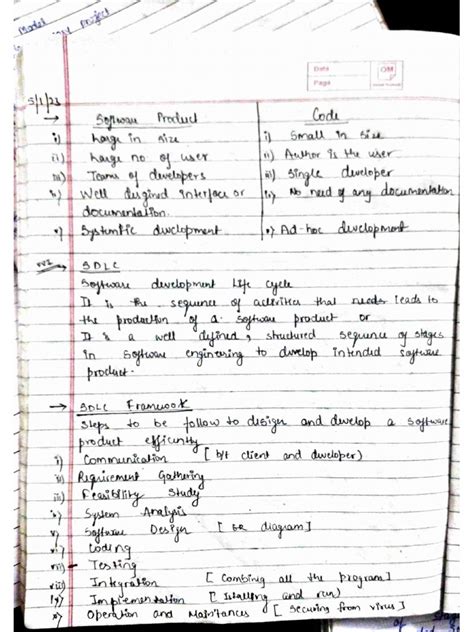 Model
Project
Date
Page
OM
5/1/23
→ Software Product    Code
i) Large in size    i) Small in size
ii) Large no of user    ii) Author is the user
iii) Teams of developers    iii) Single developer
iv) Well disgined interface or    iv) No need of any documentation
documentation.
v) Systemtic dwelopment    v) Ad-hoc dwelopment
→ SDLC
Software development Life Cycle
It is the sequence of activities that needs leads to
the production of a software product or
It is a well defined, structured sequence of stages
in Software enginering to dwelop intended software
product.
→ SDLC Framework
Steps to be follow to disign and develop a software
product efficintly
i) Communication [ b/t client and dwelopers)
ii) Requirement Gathering
iii) Feasibility Study
iv) System Analysis
v) Software Design [ ER diagram]
vi) Coding
vii) Testing
viii) Integration [ Combing all the program]
ix) Implementation [ Istalling and run)
x) Operation and Maintances [ Securing from virus]
of